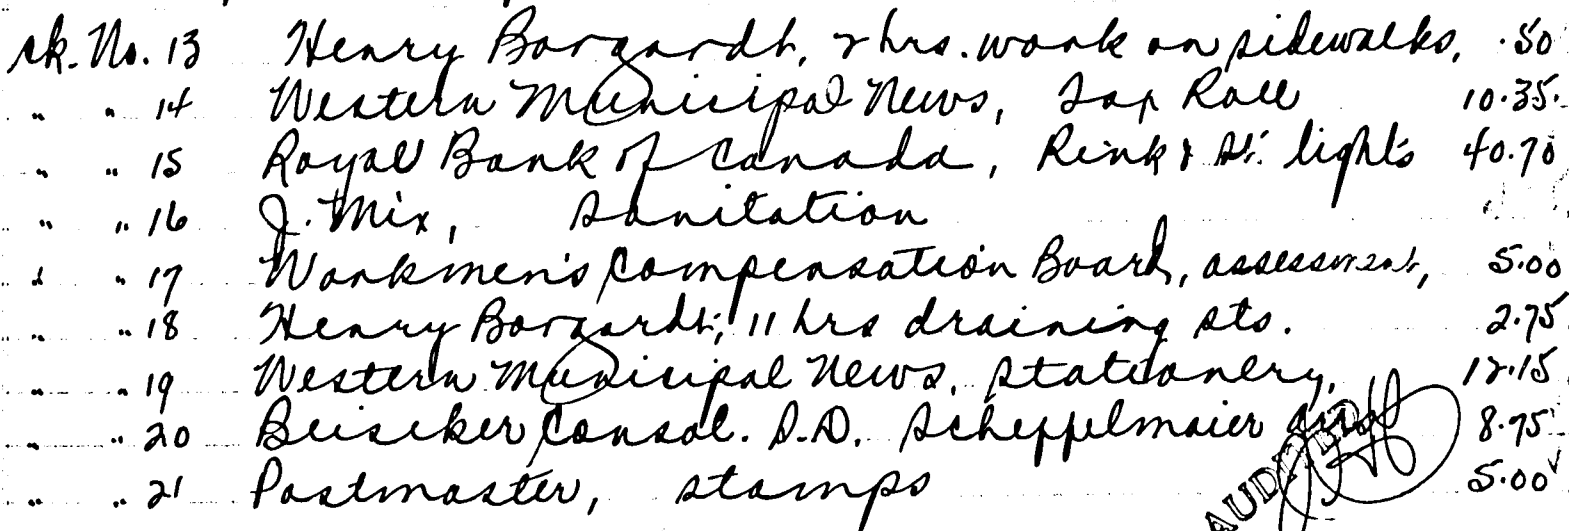 ck. No. 13 Henry Borgardt, 2 hrs. work on sidewalks, .50
" " 14 Western Municipal News, Tax Roll 10.35
" " 15 Royal Bank of Canada, Rink & St. lights 40.70
" " 16 J. Mix, Sanitation
" " 17 Workmen's Compensation Board, assessment, 5.00
" " 18 Henry Borgardt, 11 hrs draining sts. 2.75
" " 19 Western Municipal News, stationery, 12.15
" " 20 Beiseker Consol. S.D. Scheppelmaier 8.75
" " 21 Postmaster, stamps 5.00
AUDITED